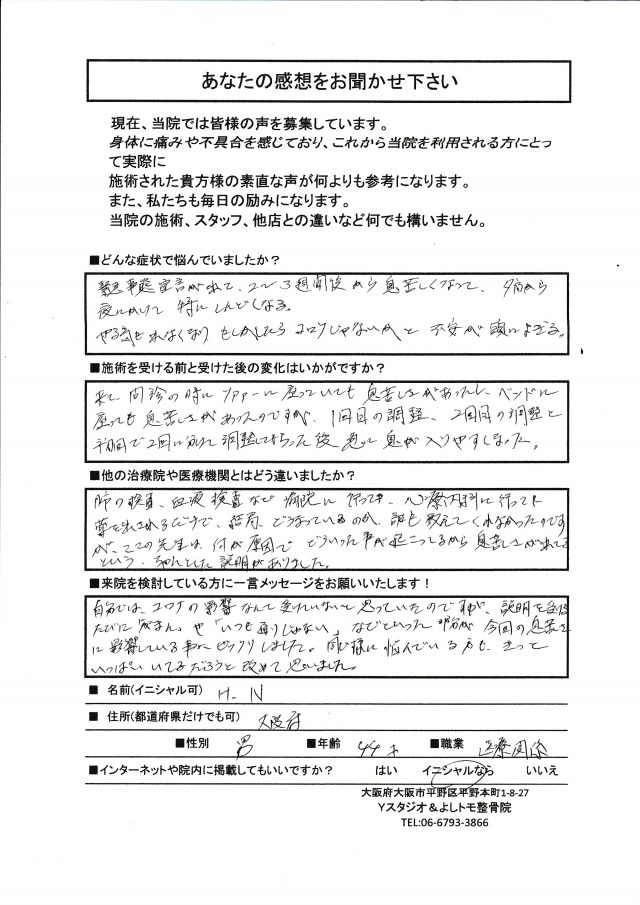 あなたの感想をお聞かせ下さい
現在、当院では皆様の声を募集しています。
身体に痛みや不具合を感じており、これから当院を利用される方にとっ
て実際に
施術された貴方様の素直な声が何よりも参考になります。
また、私たちも毎日の励みになります。
当院の施術、スタッフ、他店との違いなど何でも構いません。
■どんな症状で悩んでいましたか？
緊急事態宣言がでて、2～3週間後から息苦しくなって、夕方から
夜にかけて特にしんどくなる。
やる気もなくなり もしかしたらコロナじゃないかと 不安が頭によぎる。
■施術を受ける前と受けた後の変化はいかがですか？
来て、問診の時にソファーに座っていても息苦しさがあったし、ベッドに
座っても息苦しさがあったのですが、1回目の調整、2回目の調整と
2回に分けて調整してもらった後 急に息が入りやすくなった。
■他の治療院や医療機関とはどう違いましたか？
肺の検査、血液検査など病院に行っても、心療内科に行っても
薬を出されるだけで、結局、どうなっているのか、誰も教えてくれなかったのです
が、ここの先生は、何が原因で どういった事が起こってるから息苦しさがでてる
という、ちゃんとした説明がありました。
■来院を検討している方に一言メッセージをお願いいたします！
自分では、コロナの影響なんて受けないと思っていたのですが、説明を受ける
たびに"がまん"や「いつも通りじゃない」などといった 今回の息苦しさ
に影響している事にビックリしました。同じ様に悩んでいる方も、きっと
いっぱいいてるだろうと改めて思いました。
■ 名前(イニシャル可) H.N
■ 住所(都道府県だけでも可) 大阪府
■性別 男 ■年齢 44才 ■職業 医療関係
■インターネットや院内に掲載してもいいですか？ はい イニシャルなら いいえ
大阪府大阪市平野区平野本町1-8-27
Yスタジオ＆よしトモ整骨院
TEL:06-6793-3866